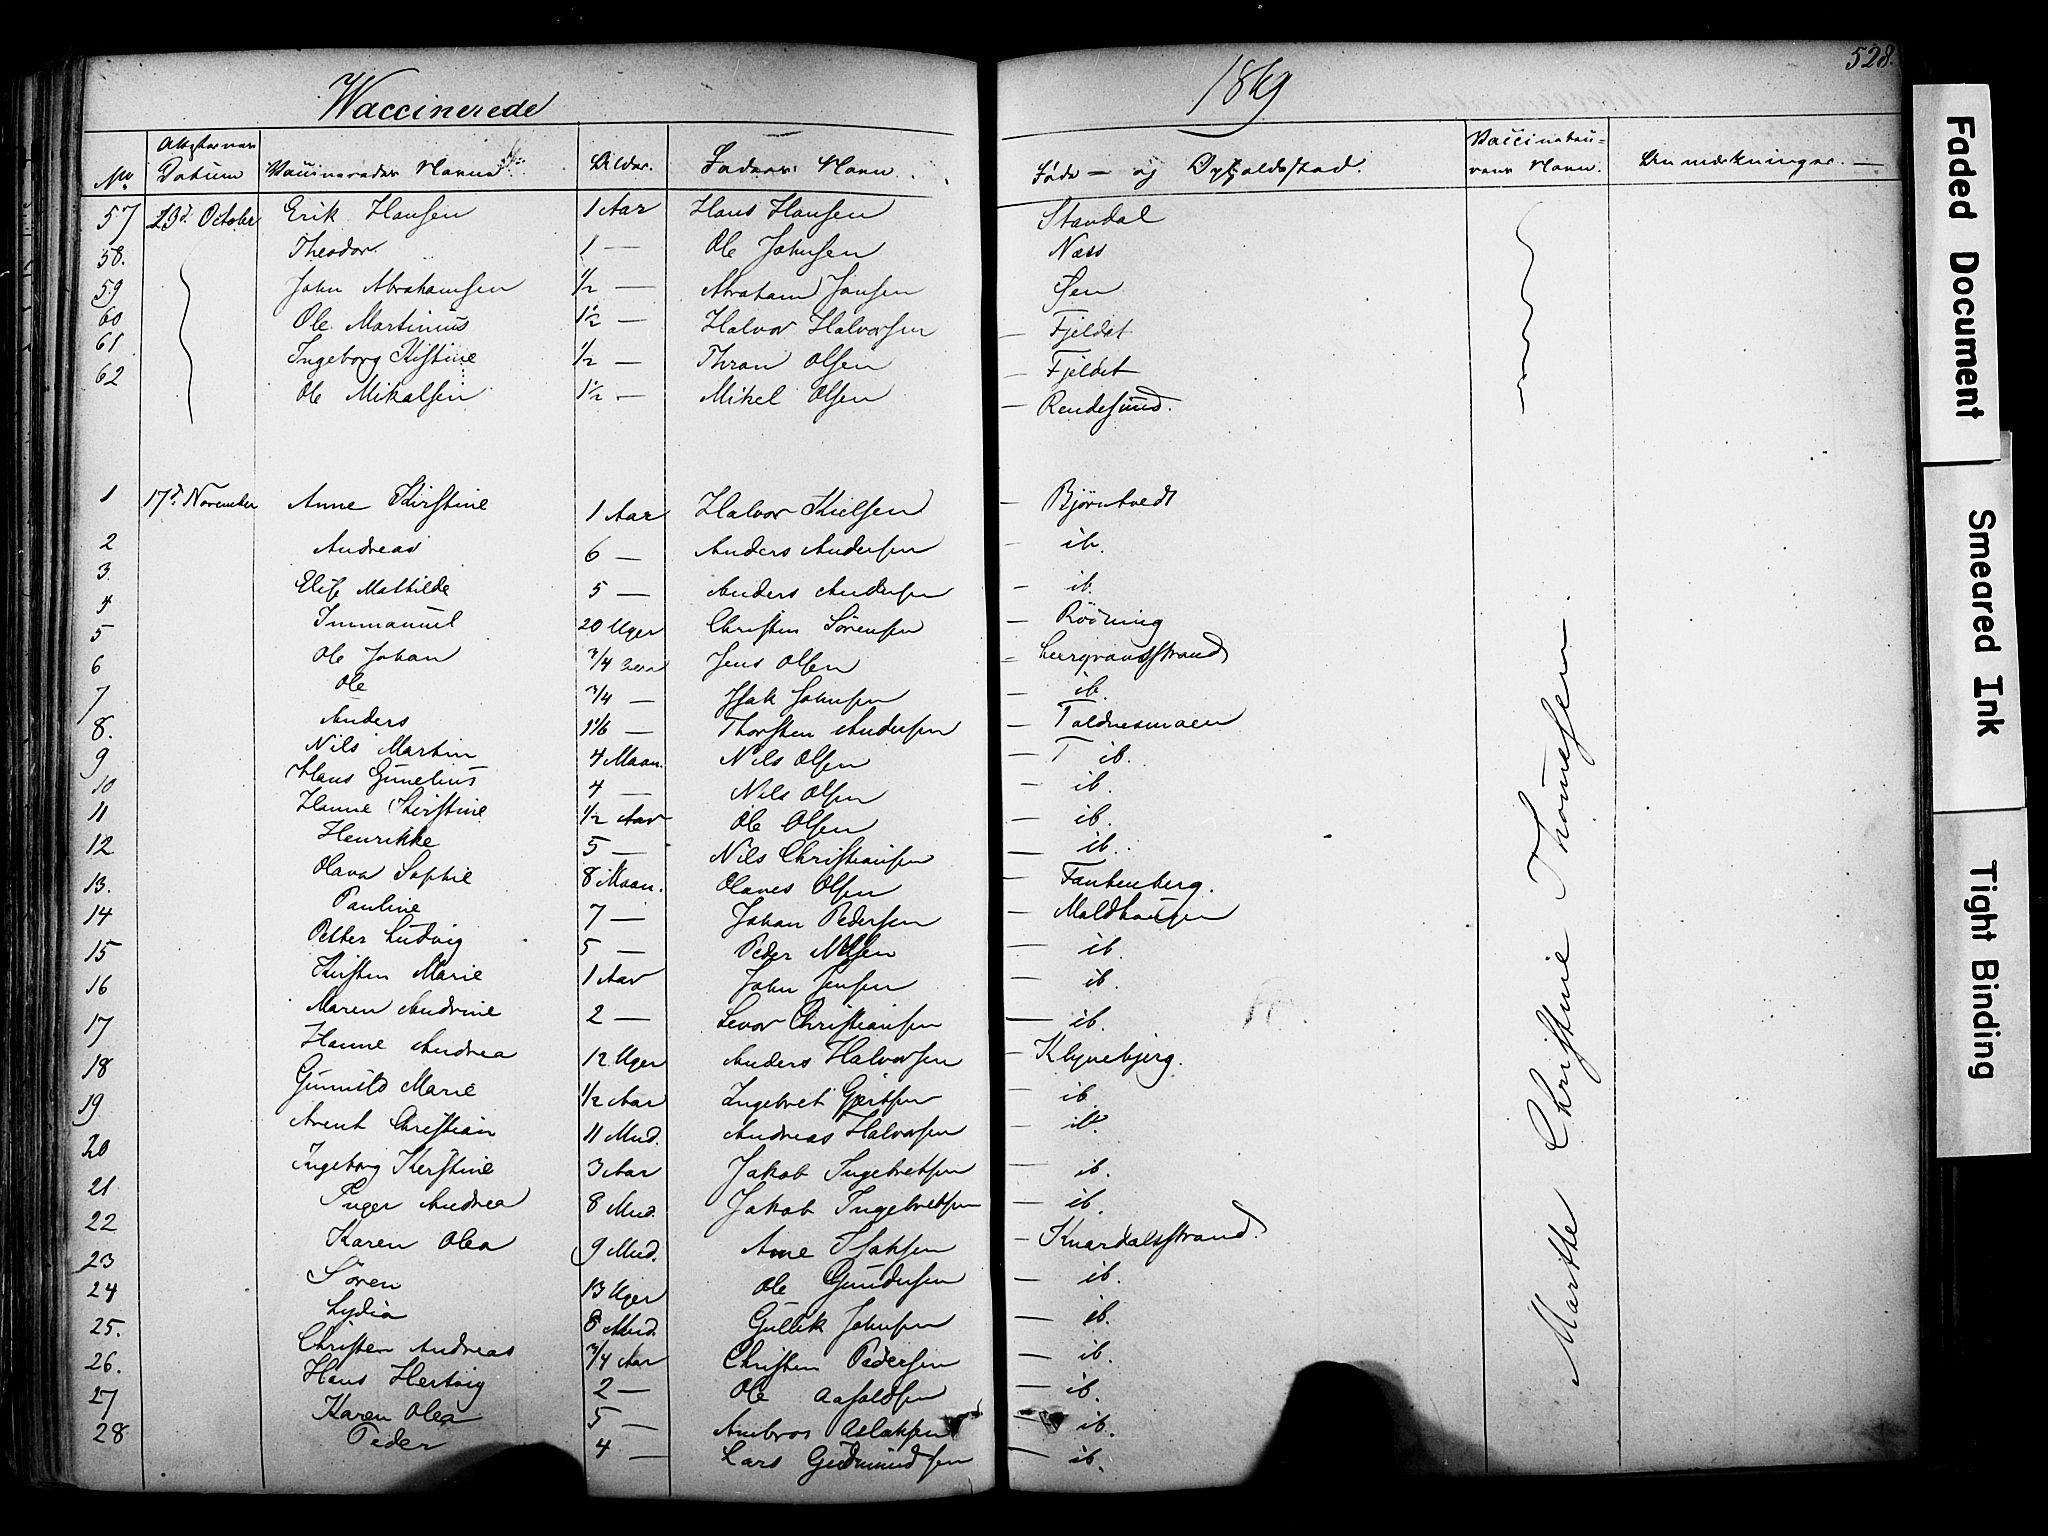 Waccinerede 1869 528.
No. Attesternes Datum Vaccineredes Navne Alder. Faderens Navn Føde- og Opholdsstad. Vaccinateurens Navn. Anmærkninger.
57 23d. October Erik Hansen 1 Aar Hans Hansen Standal
58. Theodor 1 — Ole Johnsen Næss
59 John Abrahamsen 1/2 — Abraham Jansen Øen
60 Ole Martinius 1 1/2 — Halvor Halvorsen — Fjeldet
61 Ingeborg Kistine 1/2 — Thron Olsen — Fjeldet
62 Ole Mikalsen 1 1/2 — Mikel Olsen — Rendesund.
1 17d. November Anne Kirstine 1 Aar Halvor Kielsen — Bjørntvedt
2 Andreas 6 — Anders Andersen — ib.
3 Elise Mathilde 5 — Anders Andersen — ib.
4 Immanuel 20 Uger Christen Sörensen — Röd
5 Ole Johan 3/4 Aar Jens Olsen — Leergravsstrand
6 Ole 3/4 — Isak Johnsen — ib.
7 Anders 1 1/6 — Thorsten Andersen — Toldnesmoen
8. Nils Martin 4 Maan. Nils Olsen — ib.
9 Hans Gunelius 4 — Nils Olsen — ib.
10 Hanne Kirstine 1/2 Aar Ole Olsen — ib.
11 Henrikke 5 — Nils Christiansen — ib.
12 Olava Sophie 8 Maan. Olaves Olsen — Fantenberg.
13. Pauline 7 — Johan Pedersen — Moldhougen
14 Petter Ludvig 5 — Peder Nilsen — ib.
15 Kirsten Marie 1 Aar John Jensen — ib.
16 Maren Andrine 2 — Levor Christiansen — ib.
17 Hanne Andrea 12 Uger Anders Halvorsen — Klyvebjerg.
18 Gunnild Marie 1/2 Aar Ingebret Gjertsen — ib.
19 Arent Christian 11 Mnd. Andreas Halvorsen — ib.
20 Ingeborg Kerstine 3 Aar Jakob Ingebretsen — ib.
21 Inger Andrea 8 Mnd. Jakob Ingebretsen — ib.
22 Karen Olea 9 Mnd. Arne Isaksen — Knardalsstrand.
23 Sören 13 Uger Ole Gundersen — ib.
24 Lydia 8 Mnd. Gullik Johnsen — ib.
25. Christen Andreas 3/4 Aar Christen Pedersen — ib.
26. Hans Hertvig 2 — Ole Aasoldsen — ib.
27 Karen Olea 5 — Ambros Aslaksen — ib.
28 Peder 4 — Lars Gudmundsen — ib.
Marthe Christine Thomesen
Faded Document
Smeared Ink
Tight Binding